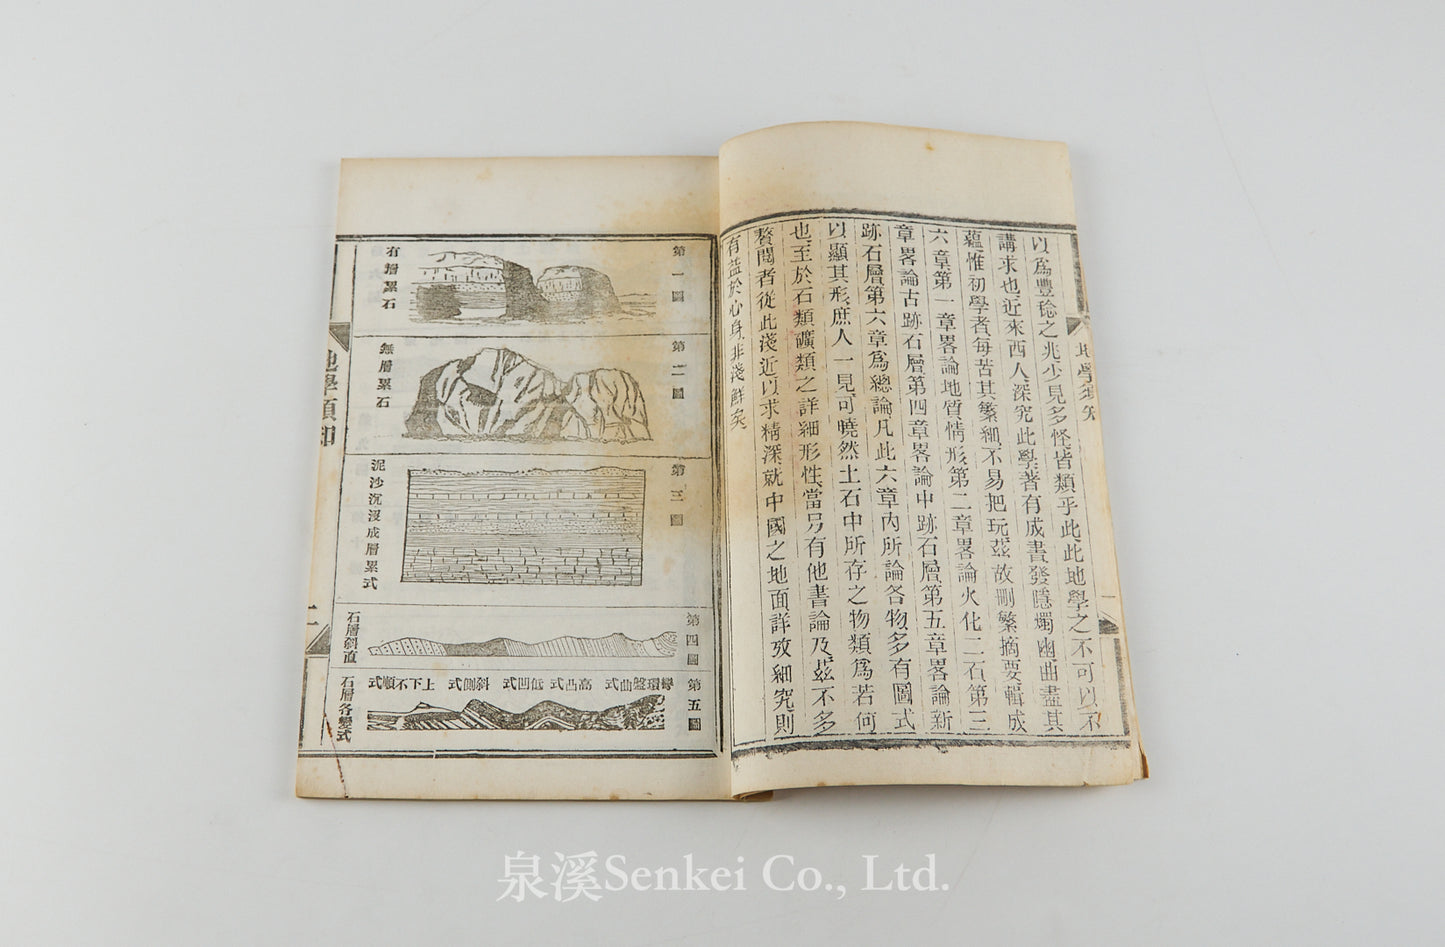 以爲豐稔之兆少見多怪皆類乎此此地學之不可以不
講求也近來西人深究此學著有成書發隱燭幽曲盡其
蘊惟初學者每苦其繁細不易把玩玆故刪繁摘要輯成
六章第一章畧論地質情形第二章畧論火化二石第三
章畧論古跡石層第四章畧論中跡石層第五章畧論新
跡石層第六章爲總論凡此六章內所論各物多有圖式
以顯其形庶人一見可曉然土石中所存之物類爲若何
也至於石類礦類之詳細形性當另有他書論及玆不多
贅閱者從此淺近以求精深就中國之地面詳攷細究則
有益於心身非淺鮮矣
地學須知
第一圖
有層纍石
第二圖
無層纍石
第三圖
泥沙沉浸成層纍式
第四圖
石層斜直
第五圖
彎環盤曲式
高凸式
低凹式
斜側式
上下不順式
石層各變式
地學須知
二
泉溪Senkei Co., Ltd.